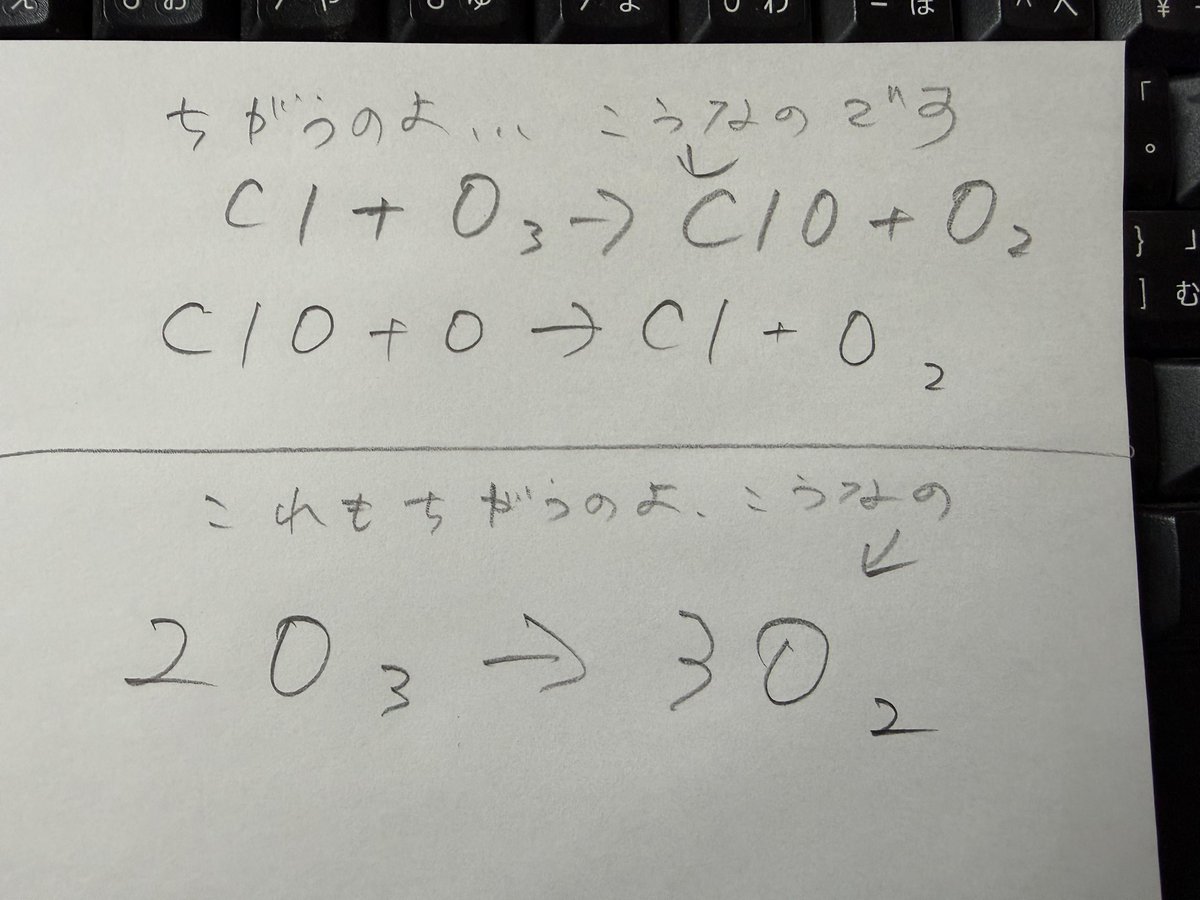 ちがうのよ... こうなのです
↓
Cl + O₃ → ClO + O₂
ClO + O → Cl + O₂
これもちがうのよ、こうなの
↓
2O₃ → 3O₂